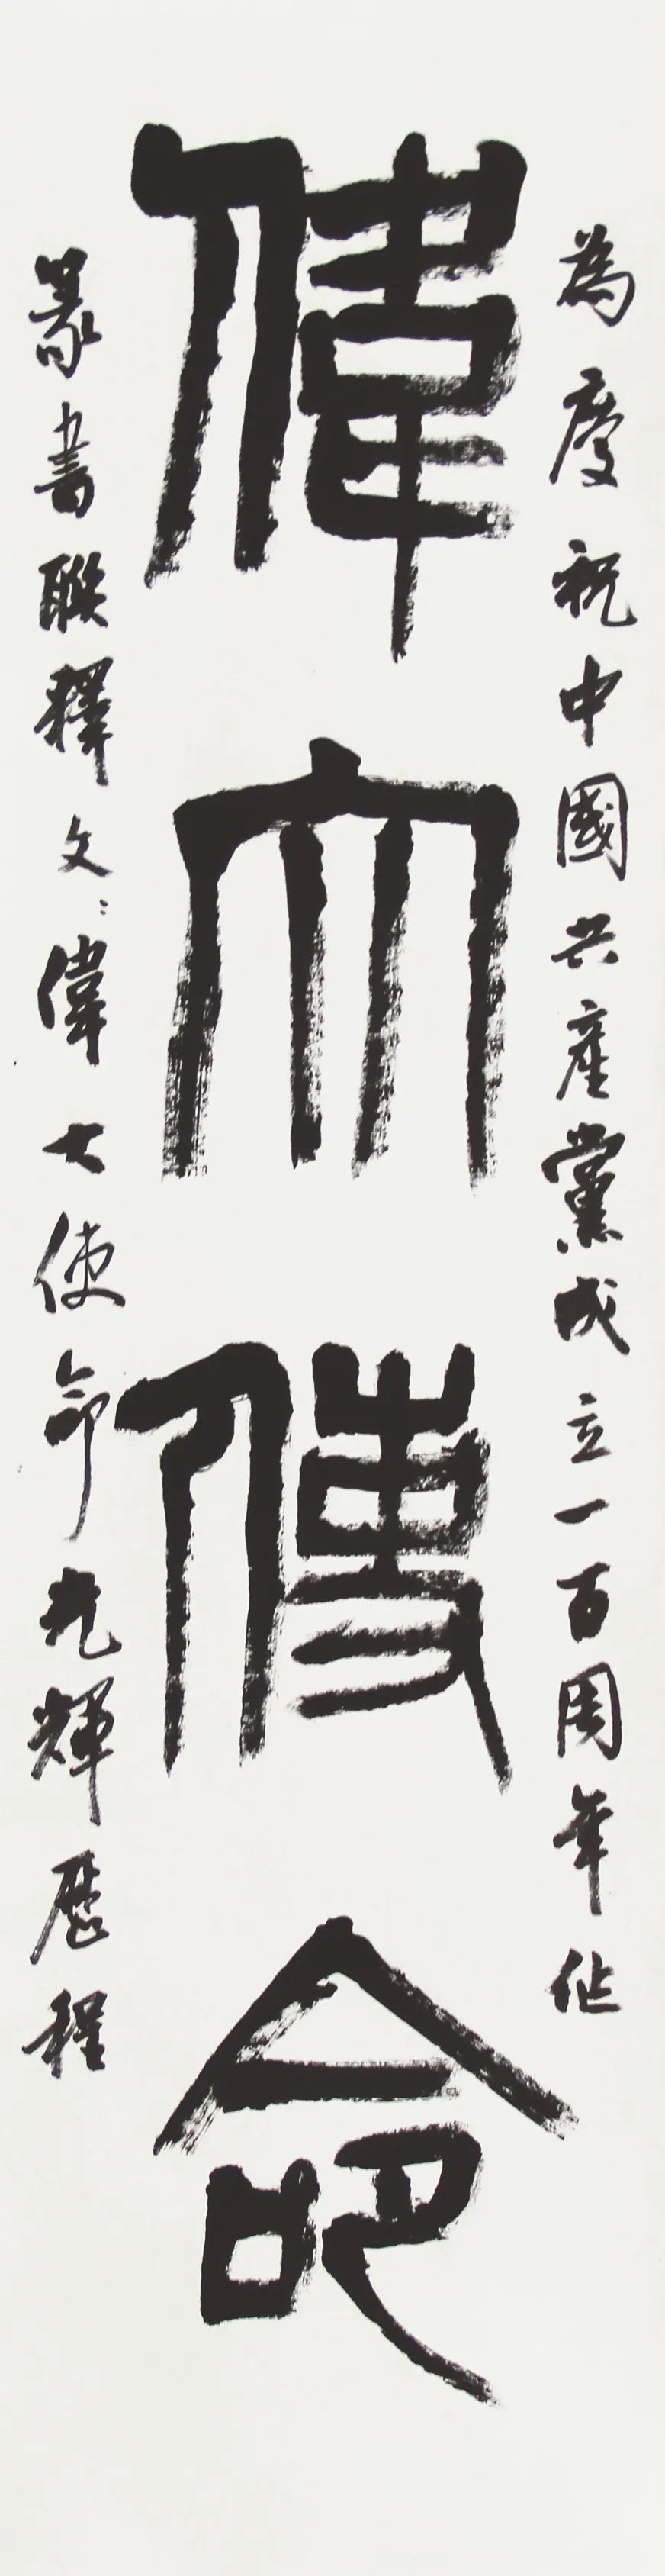 為慶祝中國共産黨成立一百周年作
偉大使命
篆書聯釋文：偉大使命光輝歷程